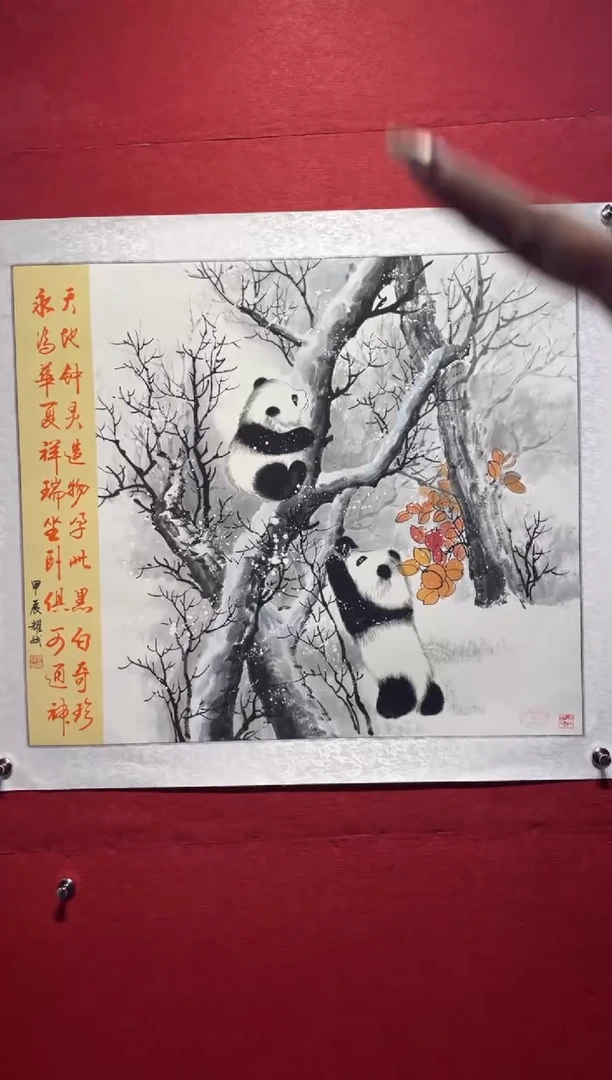 天地钟灵造物孕此黑白奇珍
永为华夏祥瑞坐卧俱可通神
甲辰耀斌